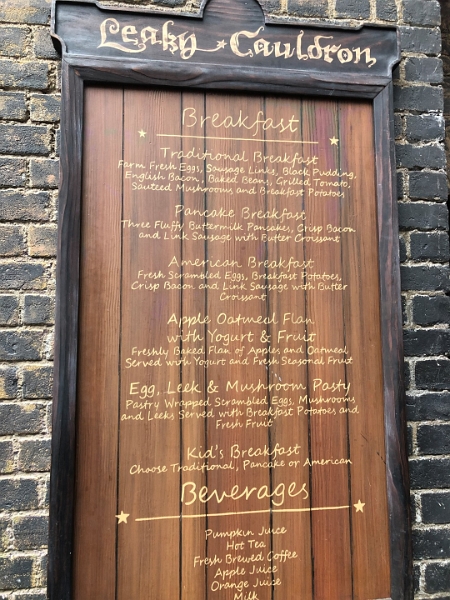 Leaky Cauldron
Breakfast
Traditional Breakfast
Farm Fresh Eggs, Sausage Links, Black Pudding,
English Bacon, Baked Beans, Grilled Tomato,
Sauteed Mushrooms and Breakfast Potatoes
Pancake Breakfast
Three Fluffy Buttermilk Pancakes, Crisp Bacon
and Link Sausage with Butter Croissant
American Breakfast
Fresh Scrambled Eggs, Breakfast Potatoes,
Crisp Bacon and Link Sausage with Butter
Croissant
Apple Oatmeal Flan
with Yogurt & Fruit
Freshly Baked Flan of Apples and Oatmeal
Served with Yogurt and Fresh Seasonal Fruit
Egg, Leek & Mushroom Pasty
Pastry Wrapped Scrambled Eggs, Mushrooms
and Leeks Served with Breakfast Potatoes and
Fresh Fruit
Kid's Breakfast
Choose Traditional, Pancake or American
Beverages
Pumpkin Juice
Hot Tea
Fresh Brewed Coffee
Apple Juice
Orange Juice
Milk